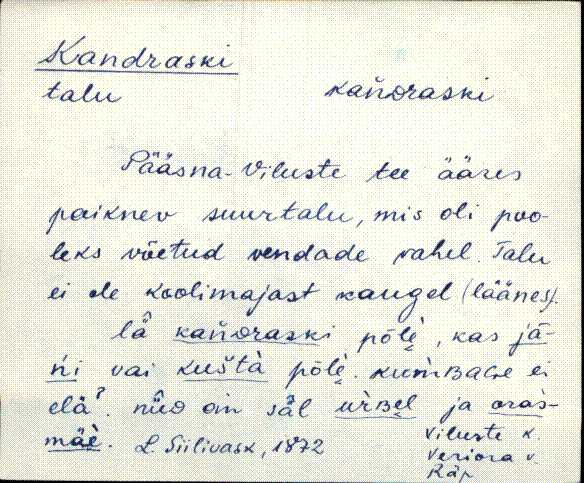 Kandraski
talu kañdraski
Pääsna-Viluste tee ääres
paiknev suurtalu, mis oli poo-
leks võetud vendade vahel. Talu
ei ole koolimajast kaugel (läänes).
lä̂ kañdraski põlè̬, kas jä-
ńi vai kuštà põlè̬. kumBaGe ei
elä̂ˀ. nǖD om säl ürBel ja oras-
mäè. L. Siilivask, 1872
Viluste k.
Veriora v.
Räp